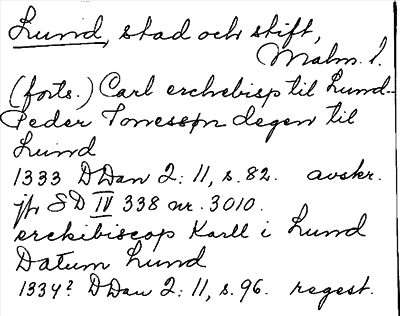 Lund, stad och stift,
Malm. l.
(forts.) Carl erchebisp til Lund-
Peder Tonesson degen til
Lund
1333 DDan 2: 11, s. 82. avskr.
jfr SD IV 338 nr. 3010.
erckibiscop Karll i Lund
Datum Lund
1334? DDan 2: 11, s. 96. regest.